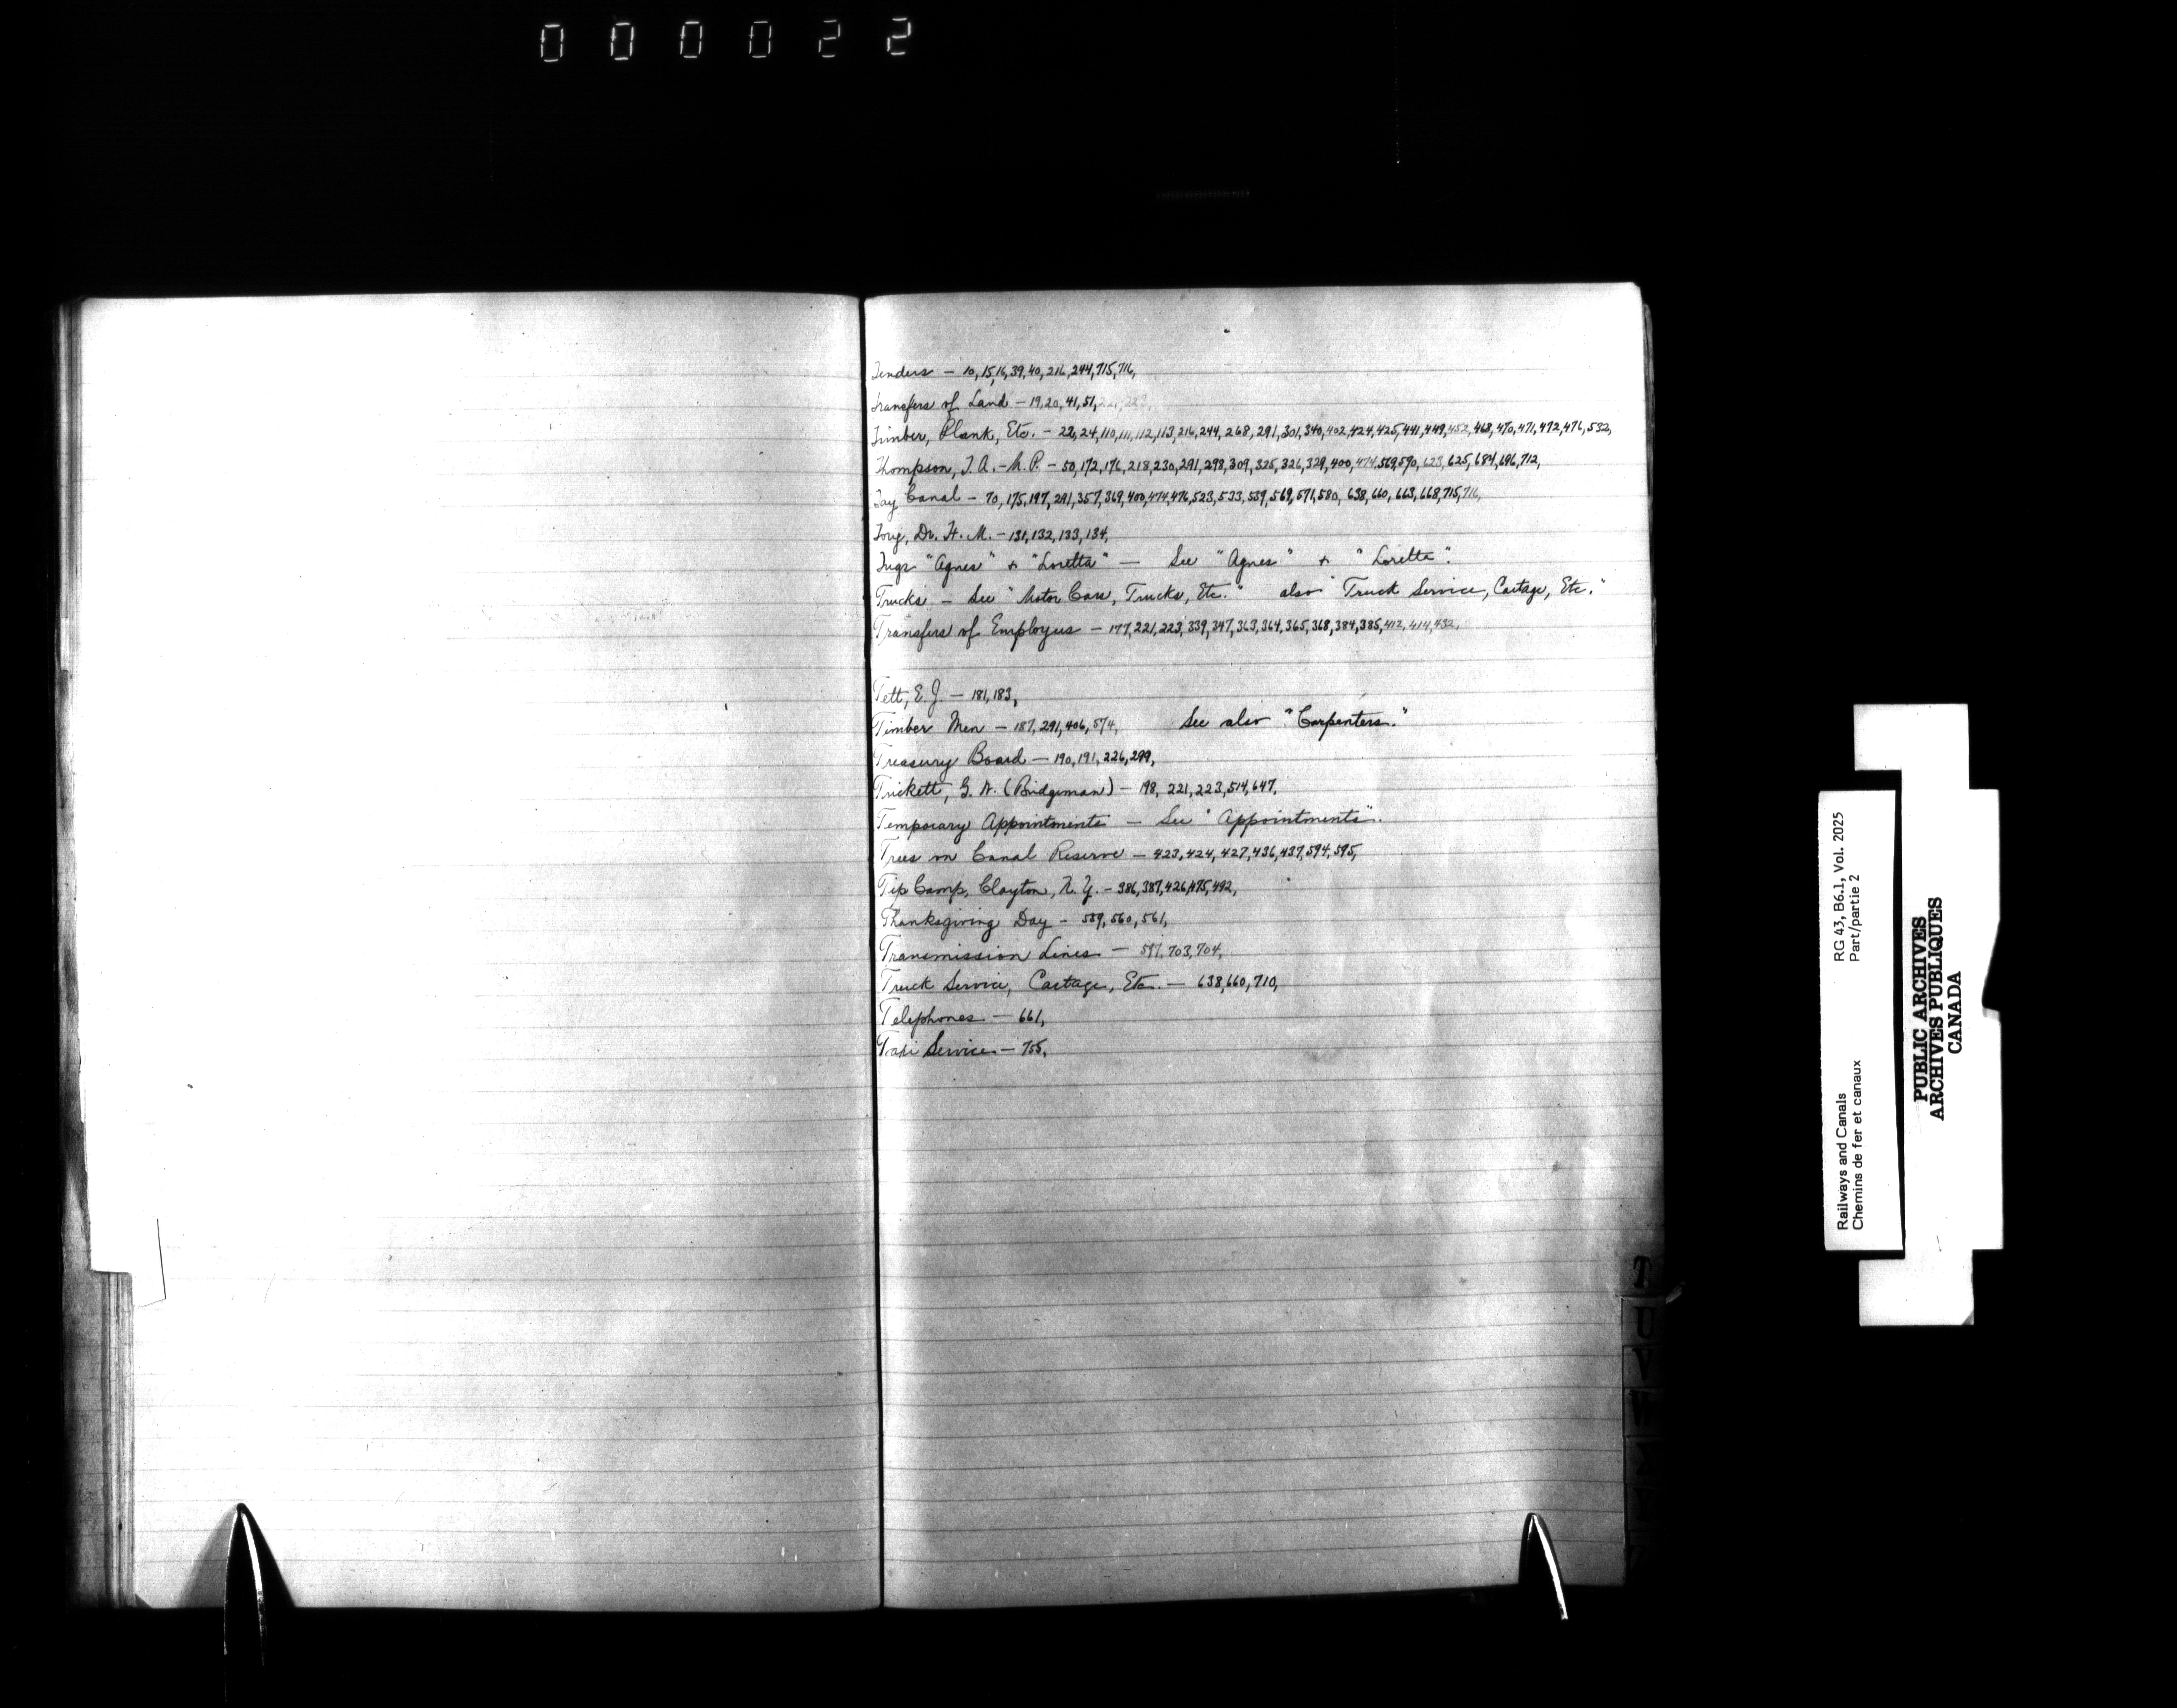 000022
Tenders - 10, 15, 16, 39, 40, 216, 244, 715, 716,
Transfers of Land - 19, 20, 41, 51, 221, 223,
Timber, Plank, Etc. - 22, 24, 110, 111, 112, 113, 216, 244, 268, 291, 301, 340, 402, 424, 425, 441, 449, 452, 468, 470, 471, 472, 476, 532,
Thompson, T. A. - M. P. - 50, 172, 176, 218, 230, 291, 298, 309, 325, 326, 329, 400, 474, 569, 590, 623, 625, 684, 696, 712,
Tay Canal - 70, 175, 197, 291, 357, 369, 400, 474, 476, 523, 533, 539, 569, 571, 580, 638, 660, 663, 668, 715, 716,
Dr. H. M. - 131, 132, 133, 134,
Tugs "Agnes" & "Loretta" - See "Agnes" & "Loretta".
Trucks - See "Motor Cars, Trucks, Etc." also "Truck Service, Cartage, Etc."
Transfers of Employees - 177, 221, 223, 339, 347, 363, 364, 365, 368, 384, 385, 412, 414, 432,
Tett, E. J. - 181, 183,
Timber Men - 187, 291, 406, 574, See also "Carpenters."
Treasury Board - 190, 191, 226, 299,
Trickett, G. N. (Bridgeman) - 198, 221, 223, 514, 647,
Temporary Appointments - See "Appointments".
Trees on Canal Reserve - 423, 424, 427, 436, 437, 594, 595,
Tip Camp, Clayton, N. Y. - 386, 387, 426, 475, 492,
Thanksgiving Day - 559, 560, 561,
Transmission Lines - 597, 703, 704,
Truck Service, Cartage, Etc. - 638, 660, 710,
Telephones - 661,
Taxi Service - 755,
T
U
V
W
RG 43, B6.1, Vol. 2025
Part/partie 2
Railways and Canals
Chemins de fer et canaux
PUBLIC ARCHIVES
ARCHIVES PUBLIQUES
CANADA